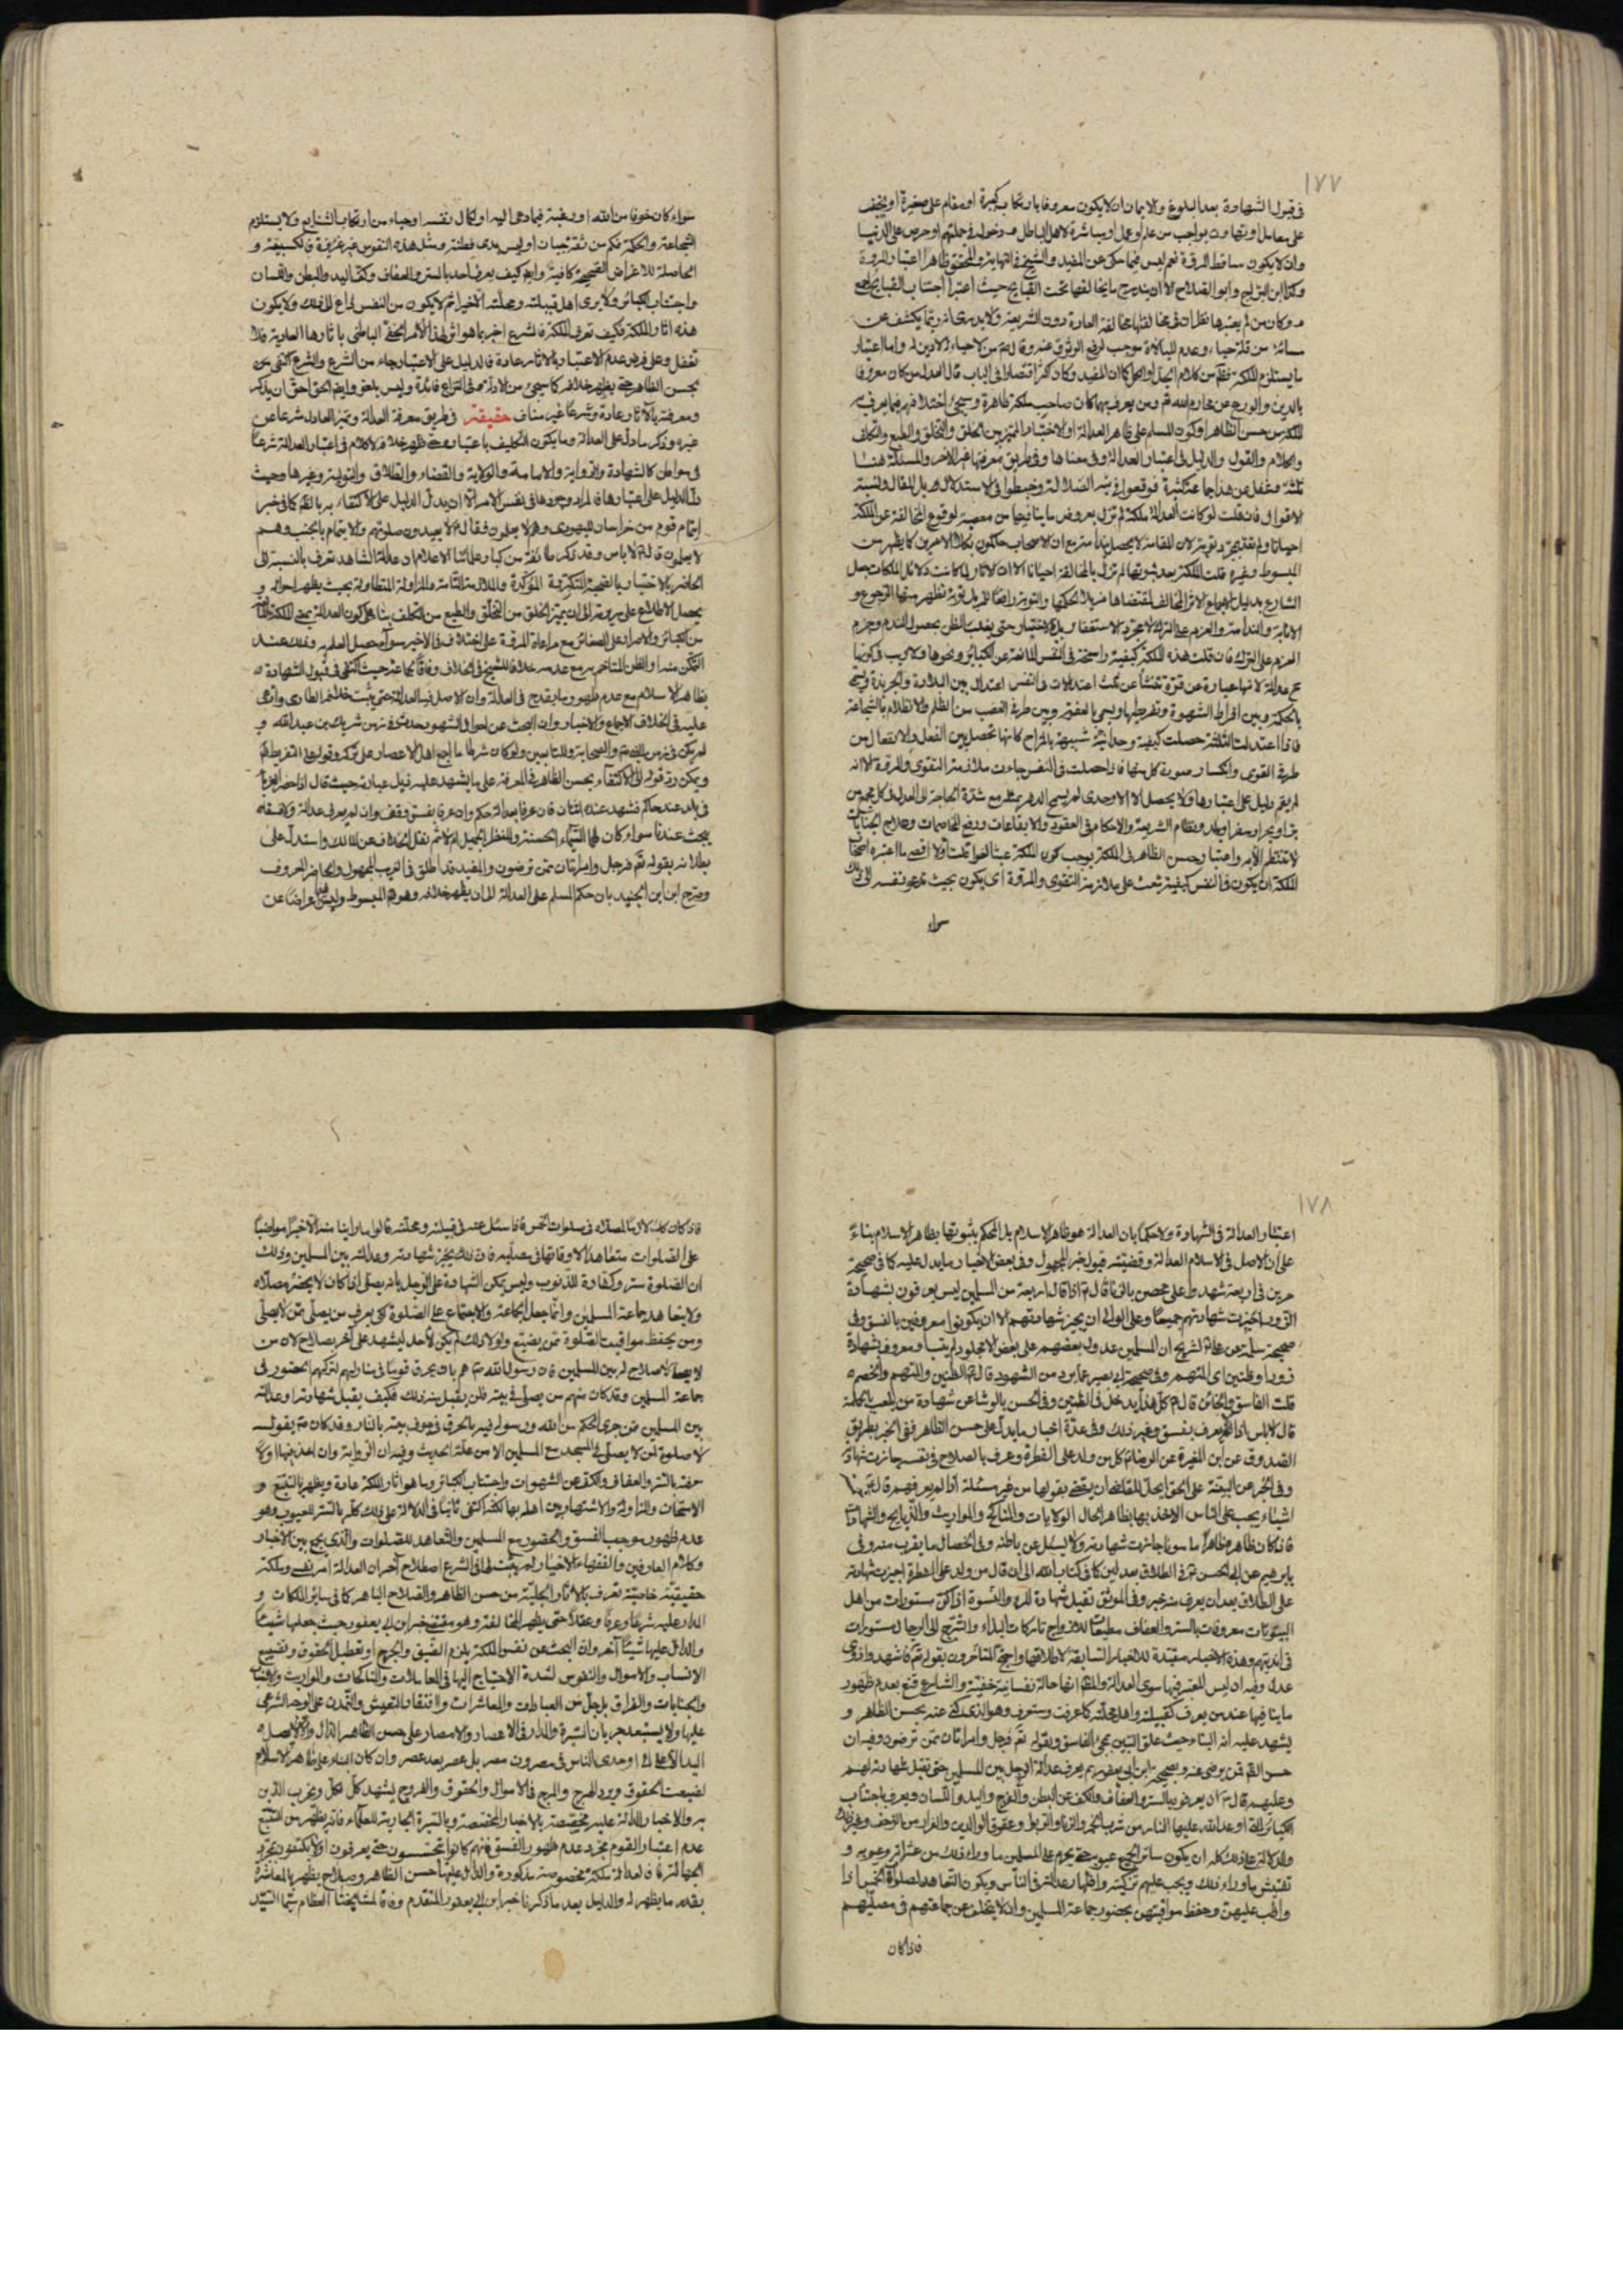 ١٧٧
فى قبول الشهادة بعد البلوغ والايمان ان لا يكون معروفا بارتكاب كبيرة او مقام على صغيرة او يخيف
على معامل او يتهاون بواجب من علم او عمل او مباشرة لاهل الباطل ودخوله فى جملتهم او حرص على الدنيا
وان لا يكون ساقط المروة نعم ليس فيما حكى عن المفيد والشيخ فى النهاية والمحقق ظاهرا اعتبار المروة
وكذا ابن البراج وابو الصلاح الا ان يندرج ما يخالفها تحت القبايح حيث اعتبرا اجتناب القبايح اجمع
وكان من لم يعتبرها نظر ان فى مخالفتها مخالفة العادة دون الشريعة ولا يدرى انه ربما يكشف عن
قلة حياء وعدم المبالاة موجب لرفع الوثوق عنه وقال من لا حياء له لا دين له واما اعتبار
ما يستلزم الملكة فظ من كلام الجل او الكل كان المفيد وكان كثرا قتصارا فى الباب قال العدل من كان معروفا
بالدين والورع عن محارم الله ومن يعرف بهما كان صاحب ملكة ظاهرة وسيجئ اختلافهم فيما يعرف به
الملكة من حسن الظاهر او كون المسلم على ظاهر العدالة او الاختبار المميز بين الخلق والتخلق والطبع والتكلف
والكلام والقول والدليل فى اعتبار العدالة وفى معناها وفى طريق معرفتها غير الاخر والمسئلة هنا
ثلثة وغفل عن هذا جماعة كثيرة فوقعوا فى تيه الضلالة وخبطوا فى الاستدلال بل المقال ونسبة
الاقوال فان قلت لو كانت العدالة ملكة لم تزل بعروض ما ينافيها من معصية لوقوع المخالفة عن الملكة
احيانا ولم تعد بمجرد توبة لان الملكة لا يحصل بذا مع ان الاصحاب حاكمون بكلا الامرين كما يظهر من
المبسوط وغيره قلت الملكة بعد ثبوتها لم تزل بالمخالفة احيانا الا ان الاثار لما كانت دلائل الملكات جعل
الشارع بدليل الاجماع الاثر المخالف لمقتضاها مزيلا لحكمها والتوبة رافعا للمزيل توبة تظهر منها الرجوع و
الانابة والندامة والعزم على الترك لا مجرد الاستغفار بل الاختبار حتى يغلب الظن بحصول الندم وجزم
العزم على الترك فان قلت هذه الملكة كيفية راسخة فى النفس المانعة عن الكبائر ونحوها ولا ريب فى كونها
عدالة لانها عبارة عن قوة تنشأ عن ثلث اعتدالات فى النفس اعتدال بين البلادة والجربزة وتسمى
بالحكمة وبين افراط الشهوة وتفريطها ويسمى بالعفة وبين طرفى الغضب من الظلم والانظلام بالشجاعة
فاذا اعتدلت الثلثة حصلت كيفية وحدانية شبيهة بالمزاج كانها تحصل بين الفعل والانفعال من
طرفى القوى وانكسار سورة كل منها فاذا حصلت فى النفس جاءت ملازمة التقوى والمروة الا انه
لم يقم دليل على اعتبارها ولا يحصل الا لاوحدى لم يسمح الدهر بمثله مع شدة الحاجة الى العدل فى كل مجمع من
بر او بحر او سفر او بلد ونظام الشريعة والاحكام فى العقود والايقاعات ورفع المخاصمات وعلاج الجنايات
لا تنتظم الا به واعتبار حسن الظاهر فى الملكة يوجب كون الملكة عبثا لغوا قلت اولا اقصى ما اعتبره اصحاب
الملكة ان يكون فى النفس كيفية تبعث على ملازمة التقوى والمروة اى يكون بحيث تدعو نفسه الى ذلك
سواء
سواء كان خوفا من الله او رغبة فيما دعى اليه او لكمال نفسه او حياء من ارتكاب الشنايع ولا يستلزم
الشجاعة والحكمة فكم من ثقة جبان او ليس بذى فطنة ومثل هذه النفوس غير عزيزة فالكسبيفة و
الحاصلة للاغراض الصحيحة كافية وايض كيف يعرف احد بالستر والعفاف وكف اليد والبطن واللسان
واجتناب الكبائر ولا يرى اهل قبيلته ومحلته الا خيرا ثم لا يكون من النفس داع الى ذلك ولا يكون
هذه اثار الملكة فكيف تعرف الملكة فالشرع اخبر بما هو اثر لهذا الامر الخفى الباطنى باثارها العادية فلا
تغفل وعلى فرض عدم الاعتبار بالاثار عادة فالدليل على الاعتبار جاء من الشرع والشرع اكتفى
بحسن الظاهر حتى يظهر خلافه كما سيجئ من الادلة فى النزاع فائدة وليس بلغو وايض الحق احق ان يذكر
ومعرفته بالاثار عادة وشرعا غير مناف حقيقة فى طريق معرفة العدالة وتميز العادل شرعا عن
غيره وذكر ما دل على العدالة وما يكون التكليف باعتباره حتى ظهر خلافه لا كلام فى اعتبار العدالة شرعا
فى مواطن كالشهادة والرواية والامامة والولاية والقضاء والطلاق والتولية وغيرها وحيث
دل الدليل على اعتبارها فالمراد وجودها فى نفس الامر الا ان يدل الدليل على الاكتفاء بالظ كما فى خبر
ايتمام قوم من خراسان لليهودى وهم لا يعلمون فقال لا يعيدون صلوتهم والايتمام بالجنب وهم
لا يعلمون قال لا باس وقد ذكر طائفة من كبار علمائنا الاعلام ان عدالة الشاهد تعرف بالنسبة الى
الحاضر بالاختبار بالصحبة المتكررة المؤكدة والملازمة التامة والمزاولة المتطاولة بحيث يظهر احواله و
يحصل الاطلاع على سريرته الى ان يتميز الخلق من التخلق والطبع من التكلف بناء على كون العدالة هى الملكة المانعة
من الكبائر والاصرار على الصغائر مع مراعاة المروة على اختلاف فى الاخير سواء حصل العلم به وذلك عند
التمكن منه او الظن المتاخم به مع عدمه خلافا للشيخ فى الخلاف وفاقا لجماعة حيث اكتفى فى قبول الشهادة
بظاهر الاسلام مع عدم ظهور ما يقدح فى العدالة وان الاصل فيه العدالة حتى يثبت خلافه الطارى وادعى
عليه فى الخلاف الاجماع والاخبار وان البحث عن احوال الشهود محدث فى زمن شريك بن عبد الله و
لم يكن فى زمن النبى والصحابة وللتابعين ولو كان شرطا ما اجمع اهل الاعصار على تركه
ويمكن رد قوله الى الاكتفاء بحسن الظاهر فى المعرفة على ما يشهد عليه ذيل عبارته حيث قال اذا حضر الغرباء
فى بلد عند حاكم فشهد عنده اثنان فان عرفا بعدالة حكم وان عرفا بفسق وقف وان لم يعرف عدالة ولا فسقا
يبحث عندنا سواء كان لهما السيماء الحسنة والمنظر الجميل ام لا ثم نقل الخلاف عن المالك واستدل على
بطلانه بقوله تع فرجل وامرأتان ممن ترضون والمفيد قد اطلق فى الغريب المجهول والحاضر المعروف
وصرح ابن الجنيد بان حكم المسلم على العدالة الى ان يظهر خلافه وهو فى المبسوط وليس اعراضا عن
١٧٨
اعتبار العدالة فى الشهادة ولا حكما بان العدالة هو ظاهر الاسلام بل الحكم بثبوتها بظاهر الاسلام بناء
على ان الاصل فى الاسلام العدالة وقضيته قبول خبر المجهول وفى بعض الاخبار ما يدل عليه كما فى صحيحة
حريز فى اربعة شهدوا على محصن بالزنا قال اذا قال اربعة من المسلمين ليس يعرفون بشهادة
الزور اجيزت شهادتهم جميعا وعلى الوالى ان يجيز شهادتهم الا ان يكونوا معروفين بالفسق وفى
صحيحة سلمة عن على لشريح ان المسلمين عدول بعضهم على بعض الا مجلود لم يتب او معروف بشهادة
زور او ظنين اى المتهم وفى صحيحة ابى بصير عما يرد من الشهود قال الظنين والمتهم والخصم
قلت الفاسق والخائن قال كل هذا يدخل فى الظنين وفى الحسن بالوشا عن شهادة من يلعب بالحمام
قال لا باس اذا لم يعرف بفسق وغير ذلك وفى عدة اخبار ما يدل على حسن الظاهر ففى الخبر بطريق
الصدوق عن ابن المغيرة عن الرضا كل من ولد على الفطرة وعرف بالصلاح فى نفسه جازت شهادته
وفى الخبر عن البينة على الحق ايحل للقاضى ان يقضى بقولها من غير مسئلة اذا لم يعرفهم قال خمسة
اشياء يجب على الناس الاخذ بها بظاهر الحال الولايات والمناكح والمواريث والذبايح والشهادات
فاذا كان ظاهره ظاهرا مامونا جازت شهادته ولا يسئل عن باطنه وفى الخصال ما يقرب منه وفى
عن ابى الحسن فى الطلاق كما فى كتاب الله الى ان قال من ولد على الفطرة اجيزت شهادته
على الطلاق بعد ان يعرف منه خير وفى الموثق تقبل شهادة المرءة والنسوة اذا كن مستورات من اهل
البيوتات معروفات بالستر والعفاف مطيعات للازواج تاركات البذاء والتبرج الى الرجال مستورات
فى انديتهم وهذه الاخبار مقيدة للاخبار السابقة لاطلاقها واحتج المتاخرون بقوله تع فاشهدوا ذوى
عدل وفيه ان ليس المعتبر فيها سوى العدالة والظ انها حالة نفسانية خفية والشارع قنع بعدم ظهور
ما ينافيها عند من يعرف كقبيلته واهل محلته كما عرفت وستعرف وهو الذى كنى عنه بحسن الظاهر و
يشهد عليه اية النباء حيث علق التبين بمجئ الفاسق وبقوله تع فرجل وامراتان ممن ترضون وفيه ان
حسن الظ من يرضى عنه وبصحيحة ابن ابى يعفور بم يعرف عدالة الرجل بين المسلمين حتى تقبل شهادته لهم
وعليهم قال ان يعرفوه بالستر والعفاف والكف عن البطن والفرج واليد واللسان ويعرف باجتناب
الكبائر التى اوعد الله عليها النار من شرب الخمر والزنا والربوا وعقوق الوالدين والفرار من الزحف وغير ذلك
والدلالة على ذلك كله ان يكون ساترا لجميع عيوبه حتى يحرم على المسلمين ما وراء ذلك من عثراته وعيوبه و
تفتيش ما وراء ذلك ويجب عليهم تزكيته واظهار عدالته فى الناس ويكون التعاهد لصلوة الخمس اذا
واظب عليهن وحفظ مواقيتهن بحضور جماعة المسلمين وان لا يتخلف عن جماعتهم فى مصليهم
فاذا كان
فاذا كان كذلك لازما لمصلاه فى صلوات الخمس فاذا سئل عنه فى قبيلته ومحلته قالوا ما راينا منه الا خيرا مواظبا
على الصلوات متعاهدا لاوقاتها فى مصليه فان ذلك يجيز شهادته وعدالته بين المسلمين وذلك
ان الصلوة ستر وكفارة للذنوب وليس يمكن الشهادة على الرجل بانه يصلى اذا كان لا يحضر مصلاه
ولا يتعاهد جماعة المسلمين وانما جعل الجماعة والاجتماع على الصلوة لكى يعرف من يصلى ممن لا يصلى
ومن يحفظ مواقيت الصلوة ممن يضيع ولولا ذلك لم يكن لاحد ليشهد على اخر بصلاح لان من
لا يصلى لا صلاح له بين المسلمين فان رسول الله هم بان يحرق قوما فى منازلهم لتركهم الحضور فى
جماعة المسلمين وقد كان منهم من يصلى فى بيته فلن يقبل منه ذلك فكيف يقبل شهادته او عدالته
بين المسلمين ممن جرى الحكم من الله ورسوله فيه بالحرق فى جوف بيته بالنار وقد كان يقول
لا صلوة لمن لا يصلى فى المسجد مع المسلمين الا من علة الحديث وفيه ان الرواية وان اخذ فيها اولا
معرفته بالستر والعفاف والكف عن الشهوات واجتناب الكبائر وما هو اثار الملكة عادة ويظهر بالتتبع و
الامتحان والمزاولة والاشتهار بين اهله بها لكنه اكتفى ثانيا فى الدلالة على ذلك كله بالستر للعيوب وهو
عدم ظهور موجب الفسق والحضور مع المسلمين والتعاهد للصلوات والذى يجمع بين الاخبار
وكلام العارفين والفقهاء الاخيار ولم يثبت لها فى الشرع اصطلاح اخر ان العدالة امر نفسى وملكة
حقيقية خاصية تعرف بالاثار الجلية من حسن الظاهر والصلاح الباهر كما فى سائر الملكات و
المدار عليه شرعا وعرفا وعقلا حتى يظهر المخالفة وهو مقتضى خبر ابن ابى يعفور حيث جعلها شيئا
والدال عليها شيئا اخر وان البحث عن نفس الملكة يلزم الضيق والحرج او تعطيل الحقوق وتضييع
الانساب والاموال والنفوس لشدة الاحتياج اليها فى المعاملات والمناكحات والمواريث والقضاء
والجنايات والفراق بل جل من العبادات والمعاشرات وافتقار التعيش والتمدن على الوجه الشرعى
عليها ولا يستبعد جريان السيرة والمدار فى الاعصار والامصار على حسن الظاهر الدال والا لم يصل
اليه الا اوحدى الناس فى مصر دون مصر بل عصر بعد عصر وان كان البناء على ظاهر الاسلام
لضيعت الحقوق ويرد الهرج والمرج فى الاموال والحقوق والفروج ليشهد كل لكل ويخرب الدين
به والاخبار الدالة عليه مخصصة بالاخبار المخصصة وبالسيرة الجارية للعلماء فانه يظهر من التتبع
عدم اعتبار القوم مجرد عدم ظهور الفسق فانهم كانوا يتجسسون حتى يعرفون او لا يكتفون بمجرد
الجهالة فالعدالة ملكة مخصوصة مذكورة والدال عليها حسن الظاهر وصلاح يظهر بالمعاشرة
بقدر ما يظهر له والدليل بعد ما ذكرنا خبر ابن ابى يعفور المتقدم وفاقا لمشايخنا العظام سيما السيد